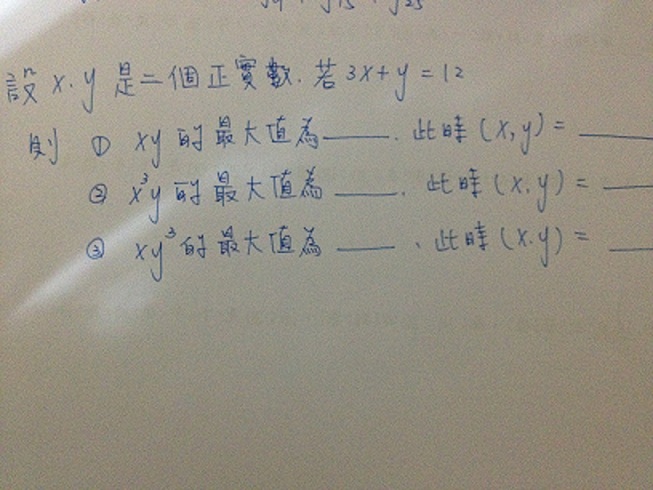 設 x.y 是二個正實數.若 3x+y=12
則 ① xy 的最大值為____.此時(x,y)=____
② x³y 的最大值為____.此時(x.y)=____
③ xy³ 的最大值為____、此時(x.y)=____